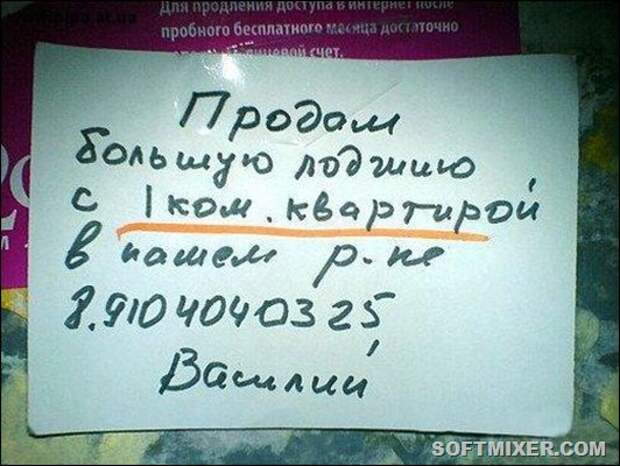 Для продления доступа в интернет после
пробного бесплатного месяца достаточно
счет.
Продам
большую лоджию
с 1 ком. квартирой
в нашем р-не
8.9104040325
Василий
SOFTMIXER.COM